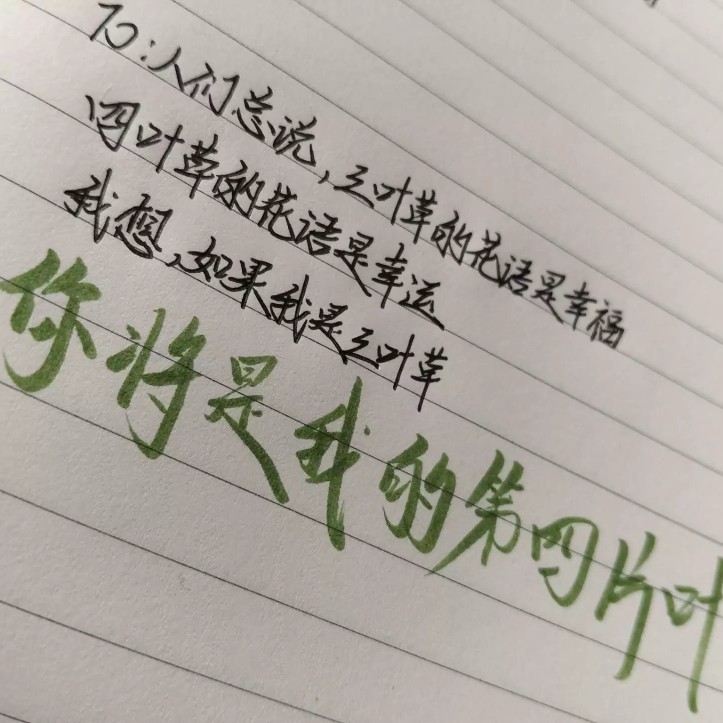 To:人们总说,三叶草的花语是幸福
四叶草的花语是幸运
我想,如果我是三叶草
你将是我的第四片叶